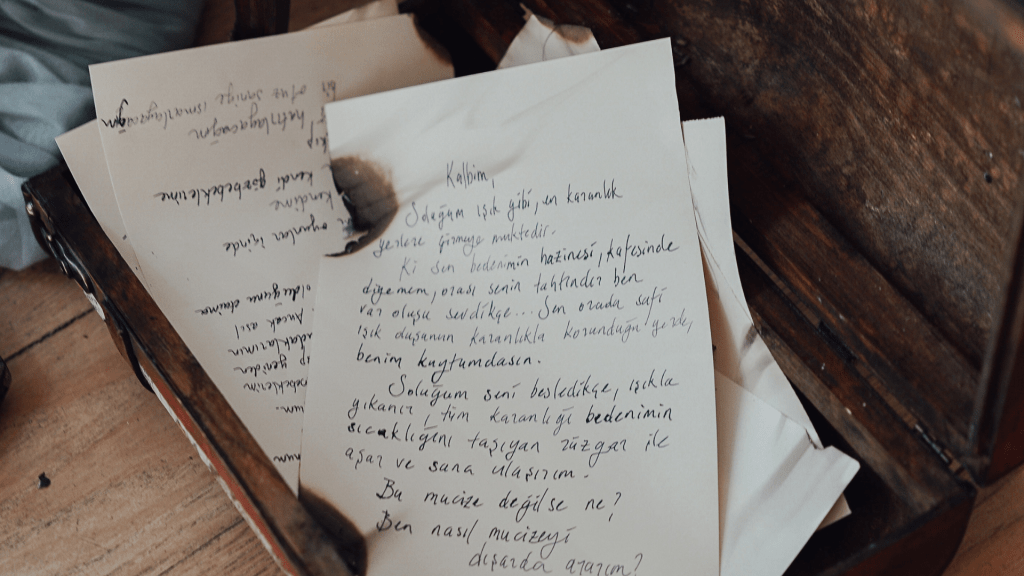 Kalbim,
Soluğum ışık gibi, en karanlık
yerlere girmeye muktedir.
Ki sen bedenimin hazinesi, kafesinde
diyemem, orası senin tahtındır ben
var oluşu sevdikçe... Sen orada safi
ışık karanlıkla korunduğu yerde,
benim kuytumdasın.
Soluğum seni besledikçe, ışıkla
yıkanır, tüm karanlığı bedenimin
sıcaklığını taşıyan rüzgar ile
aşar ve sana ulaşırım.
Bu mucize değilse ne?
Ben nasıl mucizeyi
dışarda ararım?
yerden
Ancak asıl
olduğunu daima
oyunlar içinde
kendime
kendi gözbebeklerime
hatırlayacağım
otuz saniye ısmarlayacağım